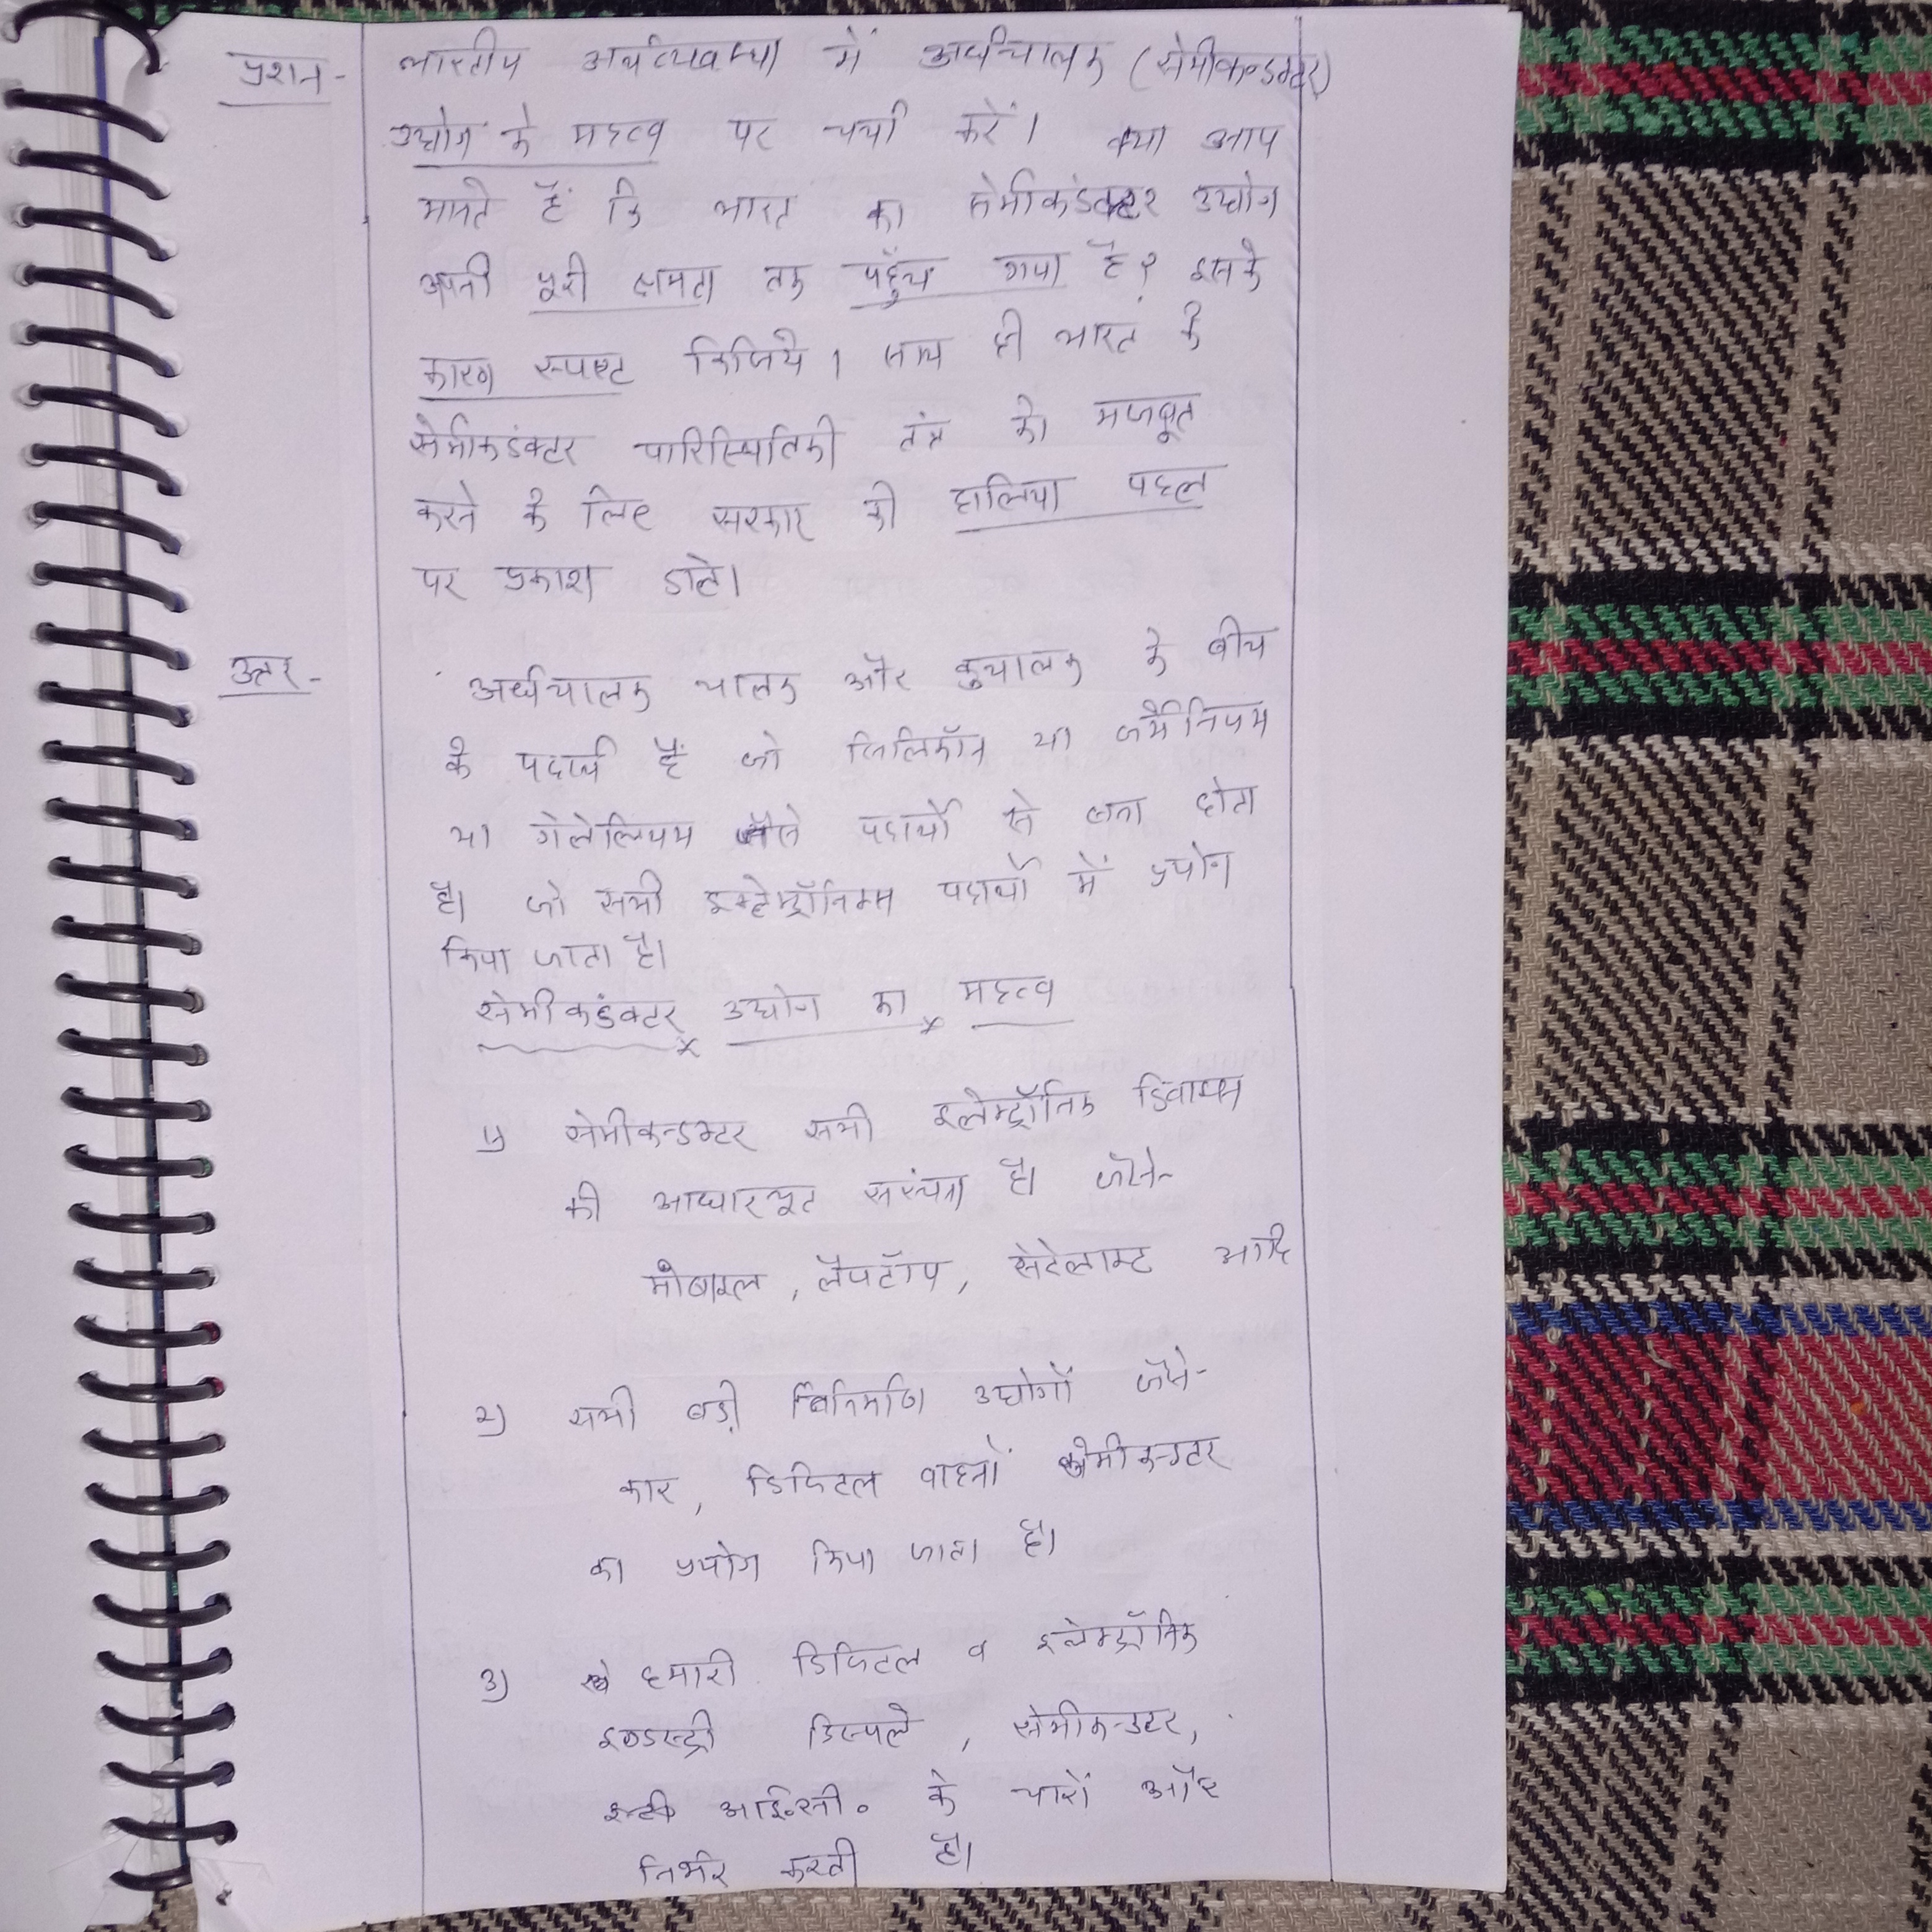 प्रशन- भारतीय अर्थव्यवस्था में अर्धचालक (सेमीकण्डक्टर)
उद्योग के महत्व पर चर्चा करें। क्या आप
मानते हैं कि भारत का सेमीकंडक्टर उद्योग
अपनी पूरी क्षमता तक पहुँच गया है? इसके
कारण स्पष्ट किजिये। साथ ही भारत के
सेमीकंडक्टर पारिस्थितिकी तंत्र को मजबूत
करने के लिए सरकार की हालिया पहल
पर प्रकाश डाले।
उत्तर- अर्धचालक चालक और कुचालक के बीच
के पदार्थ हैं जो सिलिकॉन या जर्मेनियम
या गेलेलियम जैसे पदार्थो से बना होता
है। जो सभी इलेक्ट्रॉनिक्स पदार्थो में प्रयोग
किया जाता है।
सेमीकंडक्टर उद्योग का महत्व
1) सेमीकन्डक्टर सभी इलेक्ट्रॉनिक डिवाइस
की आधारभूत संरचना है। जैसे-
मोबाइल, लैपटॉप, सेटेलाइट आदि
2) सभी बड़ी विनिर्माण उद्योगों जैसे-
कार, डिजिटल वाहनों सेमीकन्डटर
का प्रयोग किया जाता है।
3) हमारी डिजिटल व इलेक्ट्रॉनिक
इण्डस्ट्री डिस्पले, सेमीकन्डटर,
आई॰सी॰ के चारों और
निर्भर करती है।